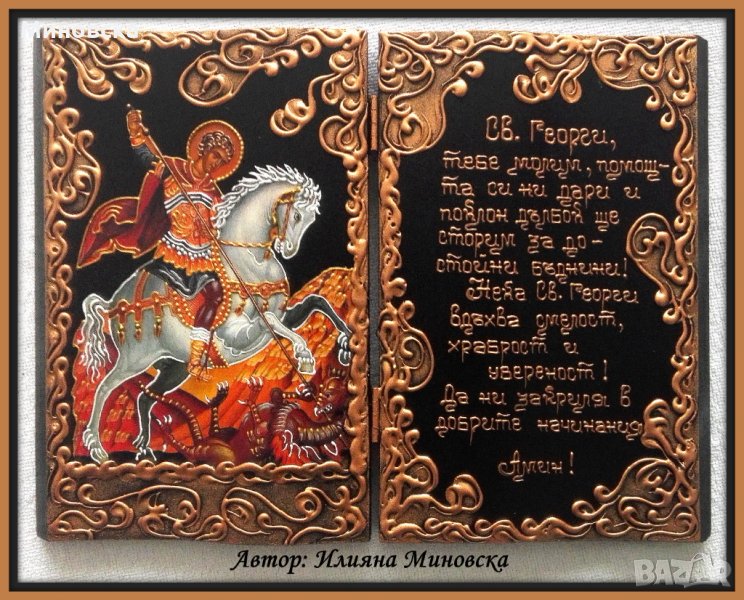 миновска
Св. Георги,
тебе молим, помощ-
та си ни дари и
поклон дълбок ще
сторим за до-
стойни бъднини!
Нека Св. Георги
вдъхва смелост,
храброст и
увереност!
Да ни закриля в
добрите начинания
Амин!
Автор: Илияна Миновска
BAZAR